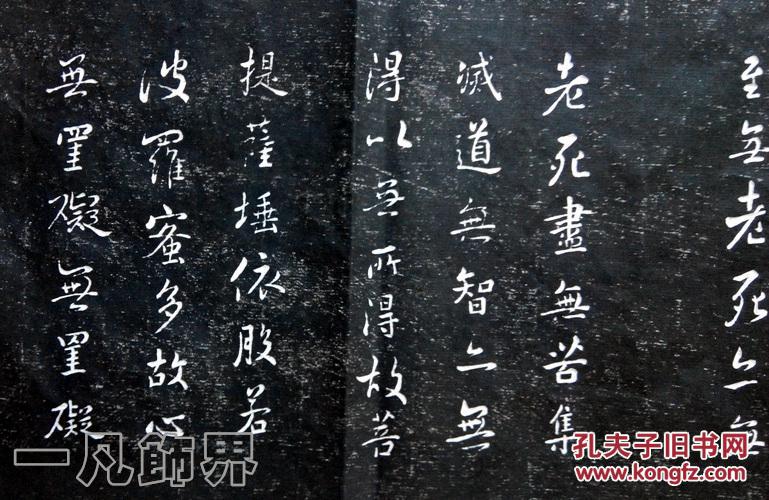 至無老死亦無
老死盡無苦集
滅道無智亦無
得以無所得故菩
提薩埵依般若
波羅蜜多故心
無罣礙無罣礙
一凡飾界
孔夫子旧书网
www.kongfz.com